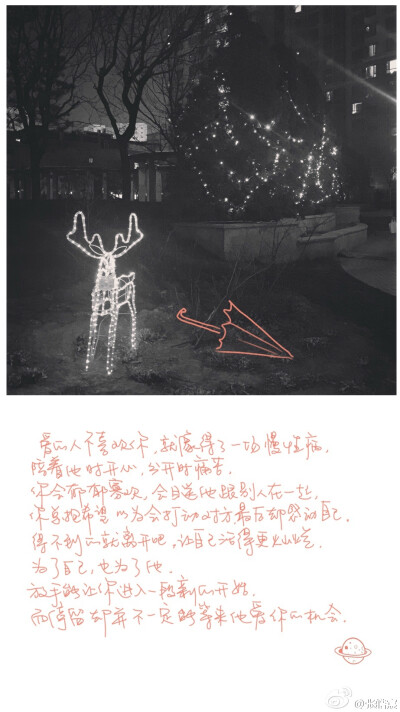 爱的人不喜欢你,就像得了一场慢性病.
陪着他时开心,分开时痛苦.
你会郁郁寡欢,会目送他跟别人在一起.
你总抱希望以为会打动对方,最后却感动自己.
得不到的就离开吧,让自己活得更灿烂.
为了自己,也为了他.
放手能让你进入一段新的开始.
而停留却并不一定能等来他爱你的机会.